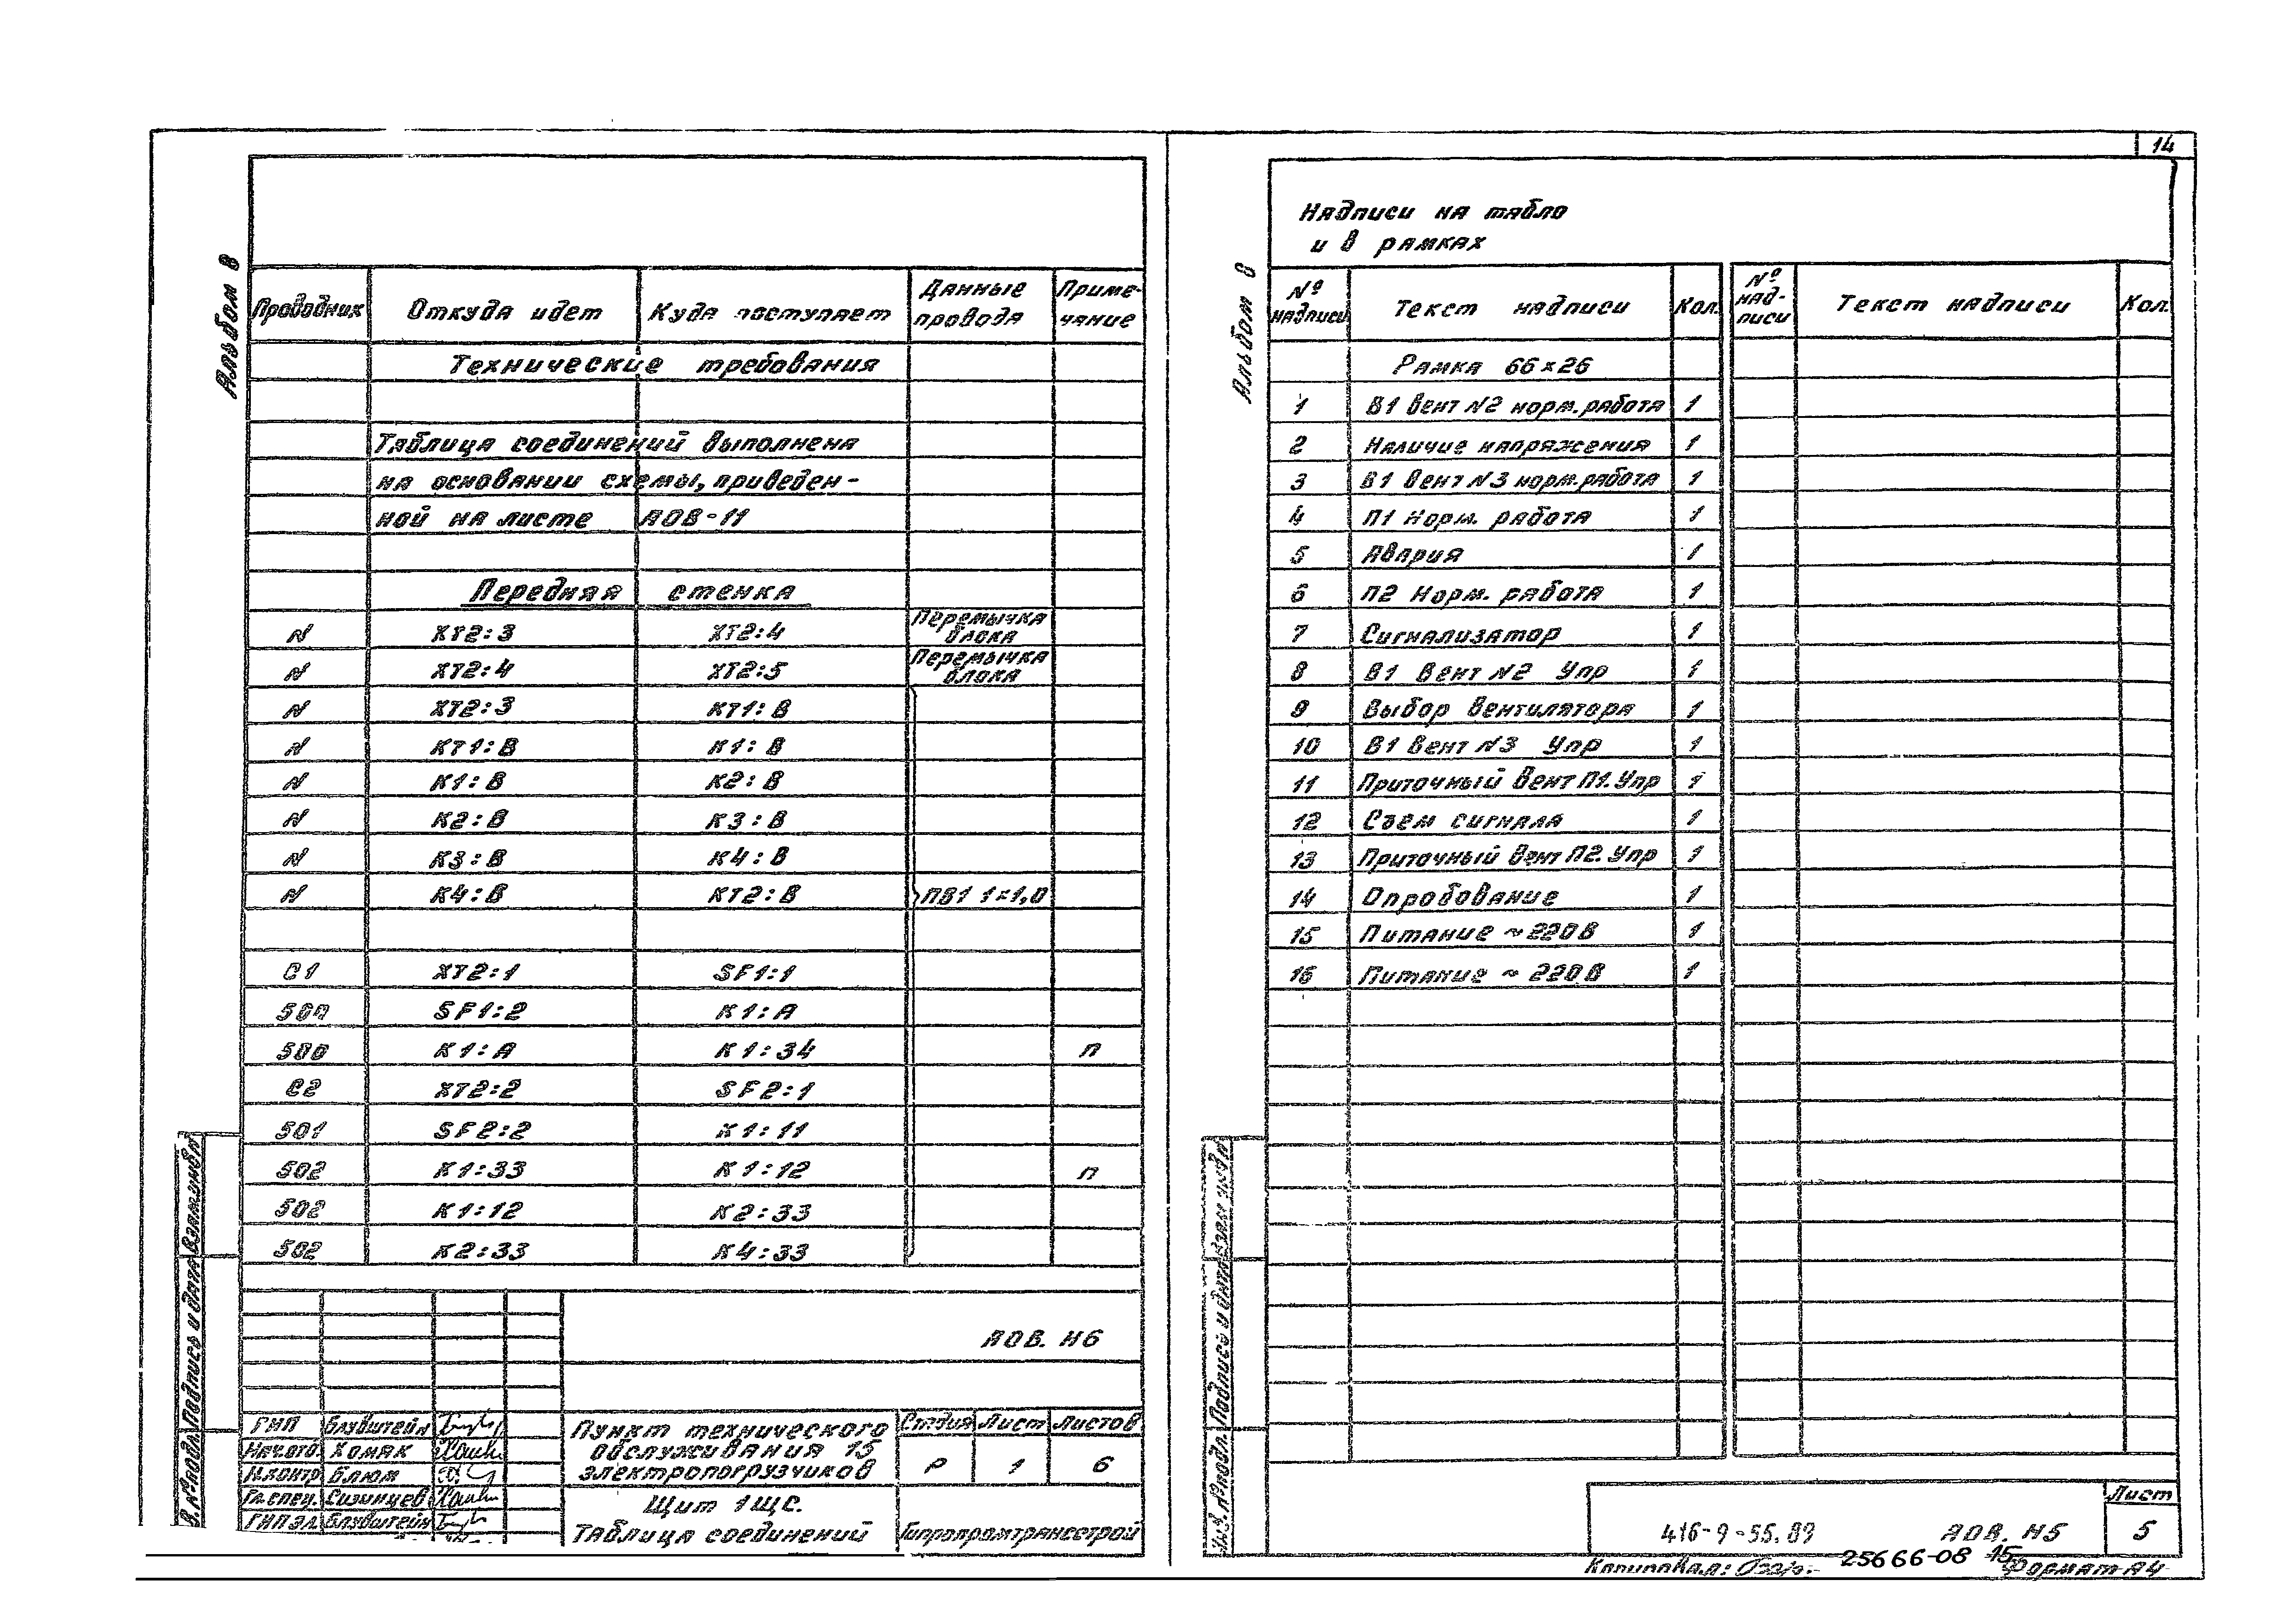 14
Альбом 8
Проводник Откуда идет Куда поступает Данные провода Примечание
Технические требования
Таблица соединений выполнена
на основании схемы, приведен-
ной на листе АОВ-11
Передняя стенка
N XT2:3 XT2:4 Перемычка блока
N XT2:4 XT2:5 Перемычка блока
N XT2:3 KT1:B
N KT1:B K1:B
N K1:B K2:B
N K2:B K3:B
N K3:B K4:B
N K4:B KT2:B ПВ1 1×1,0
C1 XT2:1 SF1:1
500 SF1:2 K1:A
500 K1:A K1:34 п
C2 XT2:2 SF2:1
501 SF2:2 K1:11
502 K1:33 K1:12 п
502 K1:12 K2:33
502 K2:33 K4:33
Взам.инв.N
Подпись и дата
АОВ. Н6
ГИП Блувштейн
Нач.отд. Хомяк
Н.контр Блюм
Гл.спец. Сизинцев
ГИП эл. Блувштейн
Пункт технического
обслуживания 15
электропогрузчиков
Стадия Лист Листов
Р 1 6
Щит 1ЩС.
Таблица соединений
Гипропромтрансстрой
Альбом 8
Надписи на табло
и в рамках
№ надписи Текст надписи Кол. № над-писи Текст надписи Кол.
Рамка 66×26
1 В1 Вент N2 норм.работа 1
2 Наличие напряжения 1
3 В1 Вент N3 норм.работа 1
4 П1 Норм. работа 1
5 Авария 1
6 П2 Норм. работа 1
7 Сигнализатор 1
8 В1 Вент N2 Упр 1
9 Выбор вентилятора 1
10 В1 Вент N3 Упр 1
11 Приточный Вент П1. Упр 1
12 Съем сигнала 1
13 Приточный Вент П2. Упр 1
14 Опробование 1
15 Питание ~220В 1
16 Питание ~220В 1
Взам инв N
Подпись и дата
Инв.N подл.
416-9-55.89 АОВ. Н5
Лист
5
Копировал:
25666-08 15
Формат А4